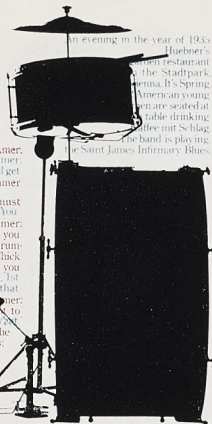 An evening in the year of 1935
Huebner's
garden restaurant
the Stadtpark,
Vienna. It's Spring
American young
men are seated at
table drinking
Kaffee mit Schlag
The band is playing
the Saint James Infirmary Blues.
mer.
mer.
get
mer
must
You
mer:
you
rum-
hick
you
1st
that
mer:
to
he